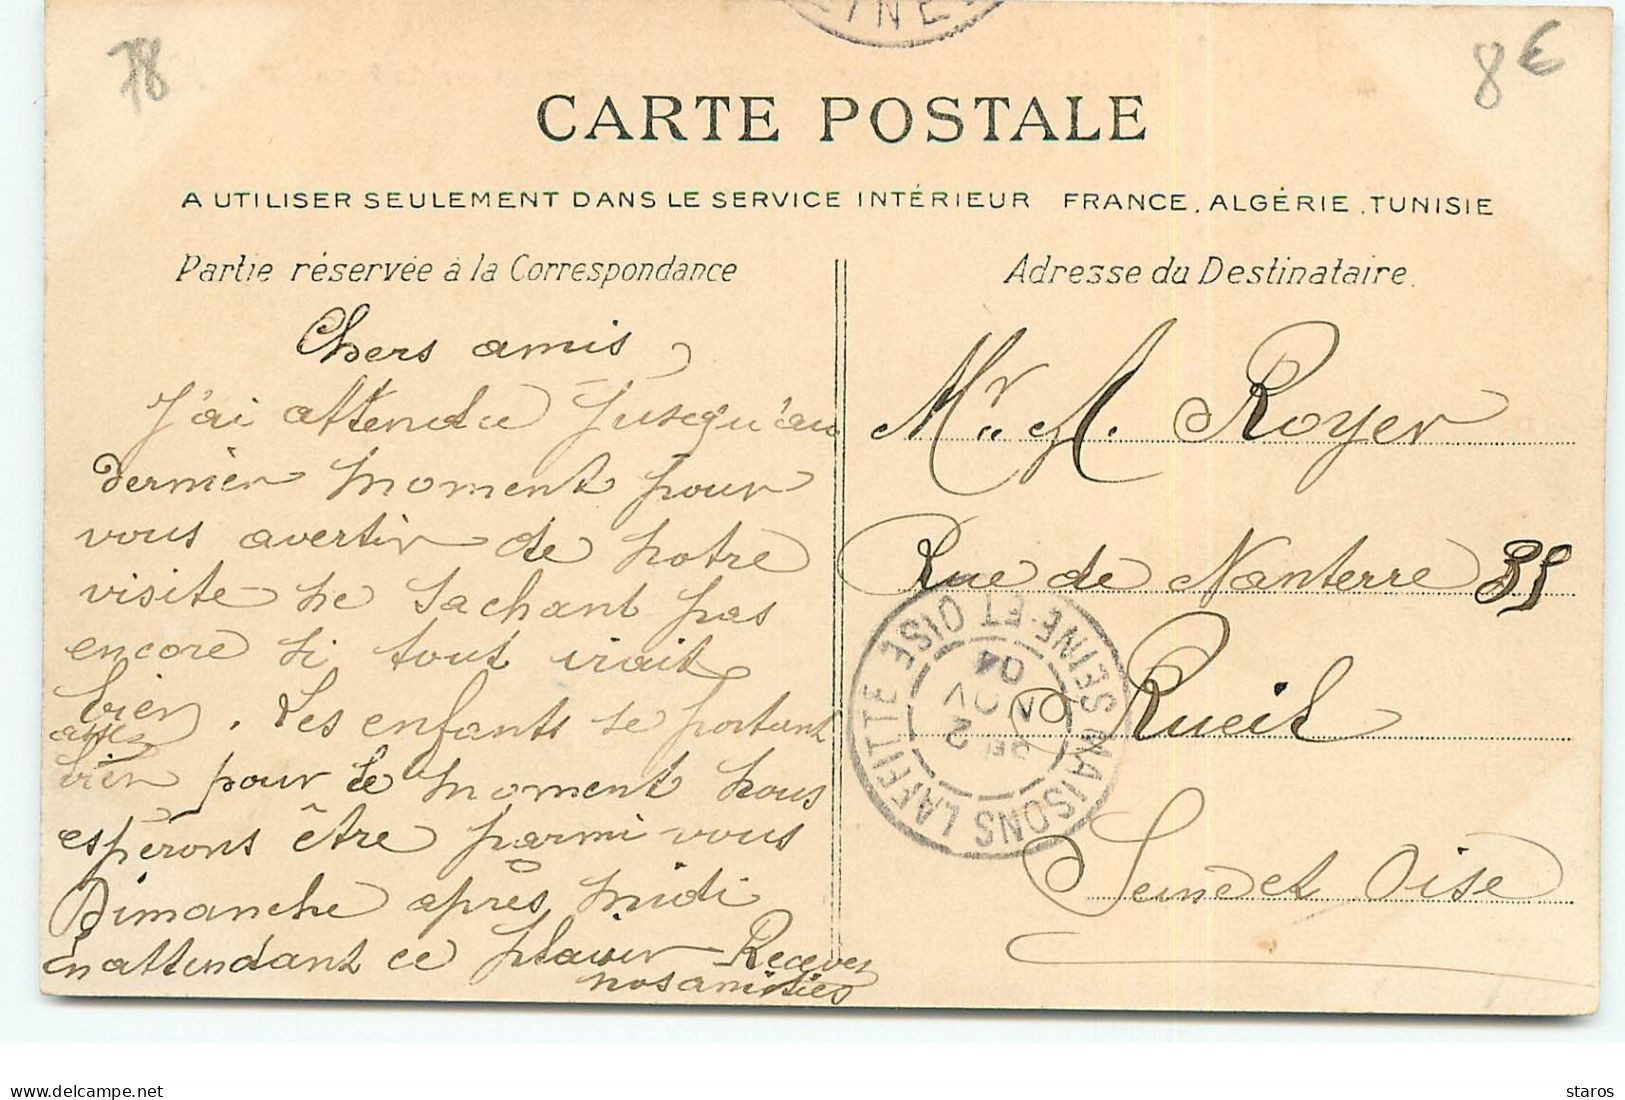 INE
78
8€
CARTE POSTALE
A UTILISER SEULEMENT DANS LE SERVICE INTÉRIEUR FRANCE, ALGÉRIE, TUNISIE
Partie réservée à la Correspondance
Chers amis
J'ai attendu jusqu'au
dernier moment pour
vous avertir de notre
visite ne sachant pas
encore si tout irait
bien. Les enfants se portent
assez
bien pour le moment nous
espérons être parmi vous
Dimanche après midi
En attendant ce plaisir Recevez
nos amitiés
Adresse du Destinataire.
Mr. A. Royer
Rue de Nanterre 35
Rueil
Seine et Oise
MAISONS LAFFITTE SEINE-ET-OISE
2
NOV
04
www.delcampe.net
staros